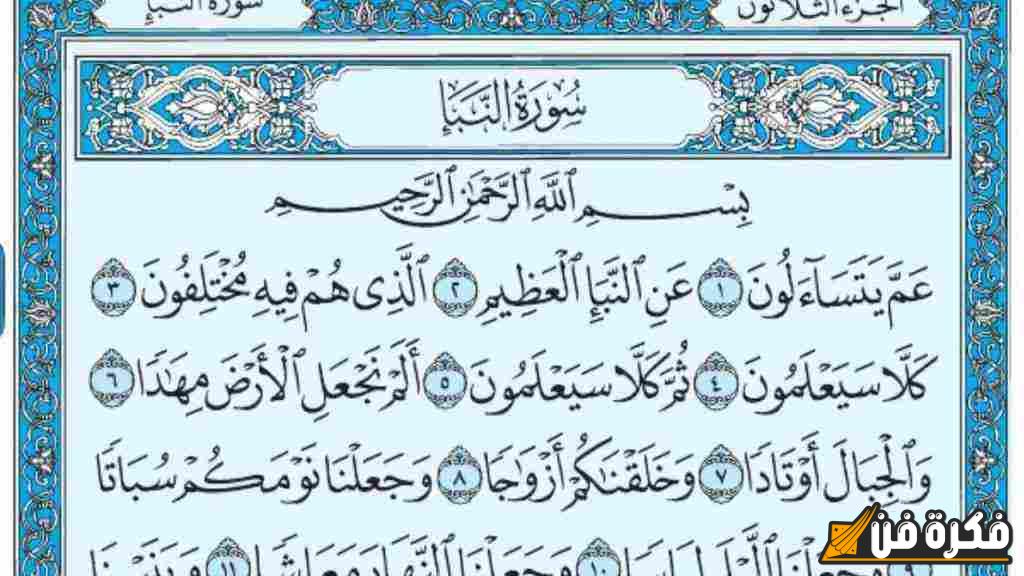 الجزء الثلاثون
سورة النبإ
سُورَةُ النَّبَإِ
بِسْمِ ٱللَّهِ ٱلرَّحْمَٰنِ ٱلرَّحِيمِ
عَمَّ يَتَسَآءَلُونَ ١ عَنِ ٱلنَّبَإِ ٱلْعَظِيمِ ٢ ٱلَّذِى هُمْ فِيهِ مُخْتَلِفُونَ ٣
كَلَّا سَيَعْلَمُونَ ٤ ثُمَّ كَلَّا سَيَعْلَمُونَ ٥ أَلَمْ نَجْعَلِ ٱلْأَرْضَ مِهَٰدًا ٦
وَٱلْجِبَالَ أَوْتَادًا ٧ وَخَلَقْنَٰكُمْ أَزْوَٰجًا ٨ وَجَعَلْنَا نَوْمَكُمْ سُبَاتًا
٩ وَجَعَلْنَا ٱلَّيْلَ لِبَاسًا ١٠ وَجَعَلْنَا ٱلنَّهَارَ مَعَاشًا ١١ وَبَنَيْنَا
فكرة فن